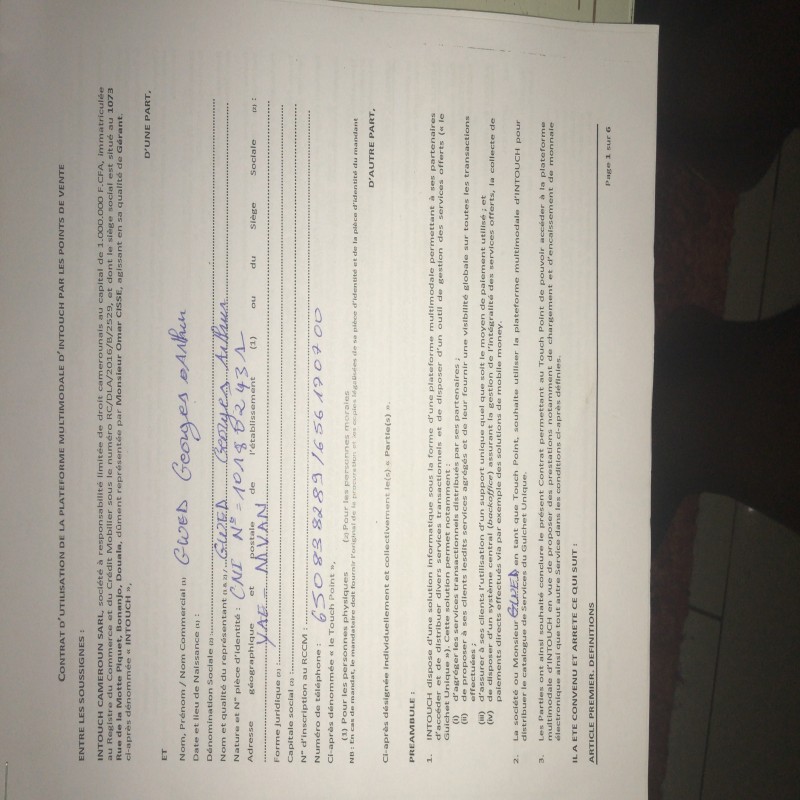 CONTRAT D'UTILISATION DE LA PLATEFORME MULTIMODALE D'INTOUCH PAR LES POINTS DE VENTE
ENTRE LES SOUSSIGNES :
INTOUCH CAMEROUN SARL, société à responsabilité limitée de droit camerounais au capital de 1.000.000 F.CFA, immatriculée
au Registre du Commerce et du Crédit Mobilier sous le numéro RC/DLA/2016/B/2529, et dont le siège social est situé au 1073
Rue de la Motte Piquet, Bonanjo, Douala, dûment représentée par Monsieur Omar CISSE, agissant en sa qualité de Gérant.
ci-après dénommée « INTOUCH »,
D'UNE PART,
ET
Nom, Prénom / Nom Commercial (1) GWED Georges
Date et lieu de Naissance (1) :
Dénomination Sociale (2)
Nom et qualité du représentant (1 & 2) : GWED Georges
Nature et N° pièce d'identité : CNI N° = 1018802431
Adresse géographique et postale de l'établissement (1) ou du Siège Sociale (2) :
YAE - MVAN
Forme juridique (2) :
Capitale social (2) :
N° d'inscription au RCCM :
Numéro de téléphone : 650838289 / 656190700
Ci-après dénommée « le Touch Point »,
(1) Pour les personnes physiques (2) Pour les personnes morales
NB : En cas de mandat, le mandataire doit fournir l'original de la procuration et les copies légalisées de sa pièce d'identité et de la pièce d'identité du mandant
D'AUTRE PART,
Ci-après désignée individuellement et collectivement le(s) « Partie(s) ».
PREAMBULE :
1. INTOUCH dispose d'une solution informatique sous la forme d'une plateforme multimodale permettant à ses partenaires
d'accéder et de distribuer divers services transactionnels et de disposer d'un outil de gestion des services offerts (« le
Guichet Unique »). Cette solution permet notamment :
(i) d'agréger les services transactionnels distribués par ses partenaires ;
(ii) de proposer à ses clients lesdits services agrégés et de leur fournir une visibilité globale sur toutes les transactions
effectuées ;
(iii) d'assurer à ses clients l'utilisation d'un support unique quel que soit le moyen de paiement utilisé ; et
(iv) de disposer d'un système central (backoffice) assurant la gestion de l'intégralité des services offerts, la collecte de
paiements directs effectués via par exemple des solutions de mobile money.
2. La société ou Monsieur GWED en tant que Touch Point, souhaite utiliser la plateforme multimodale d'INTOUCH pour
distribuer le catalogue de Services du Guichet Unique.
3. Les Parties ont ainsi souhaité conclure le présent Contrat permettant au Touch Point de pouvoir accéder à la plateforme
multimodale d'INTOUCH en vue de proposer des prestations notamment de chargement et d'encaissement de monnaie
électronique ainsi que tout autre Service dans les conditions ci-après définies.
IL A ETE CONVENU ET ARRETE CE QUI SUIT :
ARTICLE PREMIER. DEFINITIONS
Page 1 sur 6